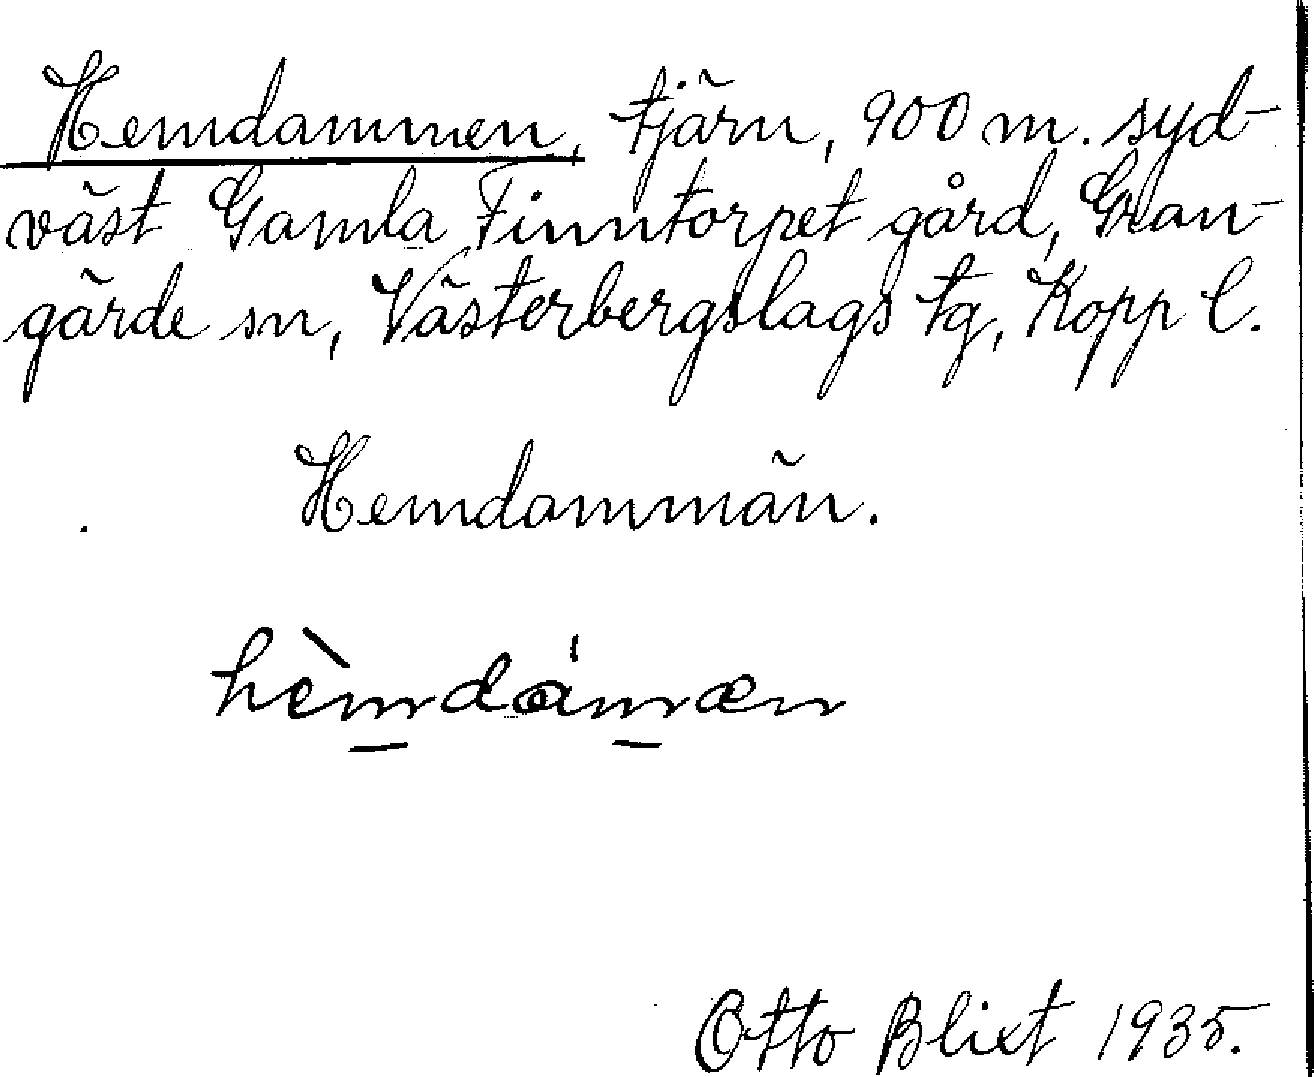 Hemdammen, tjärn, 900 m. syd-
väst Gamla Finntorpet gård, Gran-
gärde sn, Västerbergslags tg, Kopp l.
Hemdammän.
hèmdámæn
Otto Blixt 1935.